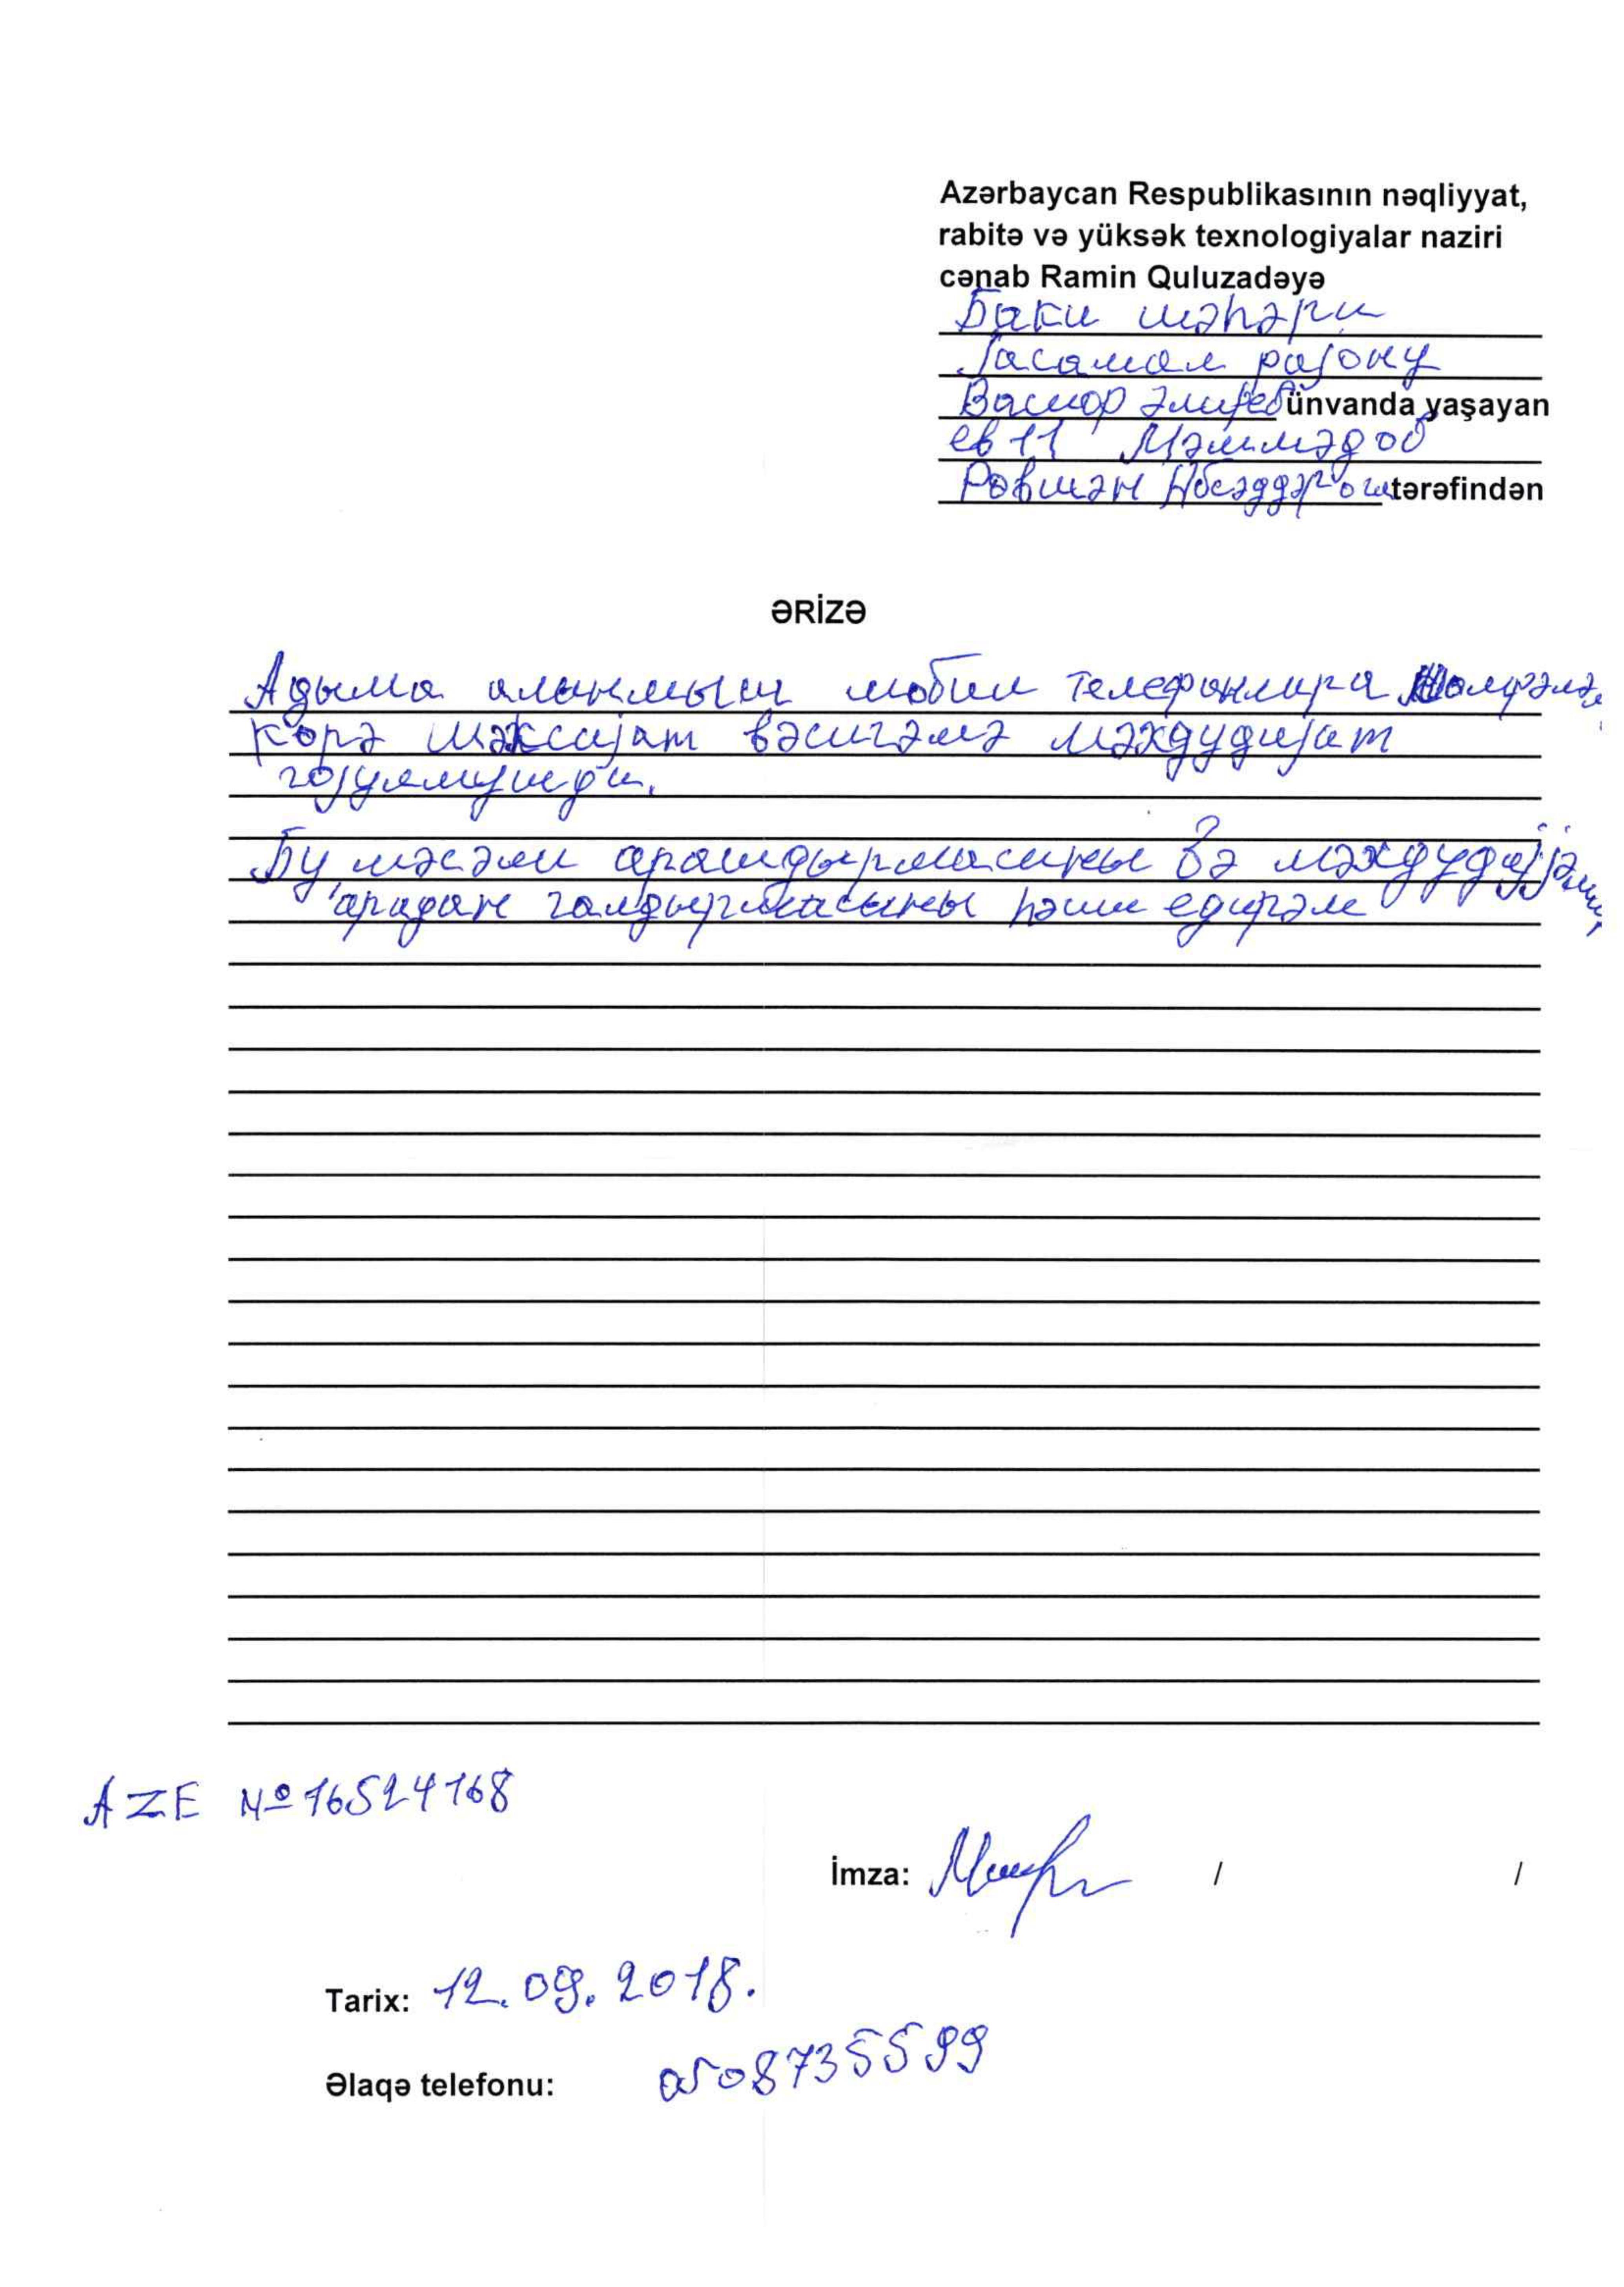 Azərbaycan Respublikasının nəqliyyat,
rabitə və yüksək texnologiyalar naziri
cənab Ramin Quluzadəyə
Баки шәһәри
Јасамал рајону
ünvanda yaşayan
ев 11 Мәммәдов
Рөвшән tərəfindən
ƏRİZƏ
Адыма алынмыш мобил телефонлара
көрә шәхсијәт вәсигәмә мәхдудијат
гојулмушди.
Бу мәсәли арашдырмасины вә
арадан галдырмасыны һәлл едирәм
AZE № 16524168
İmza: / /
Tarix: 12.09.2018.
Əlaqə telefonu: 0508735599